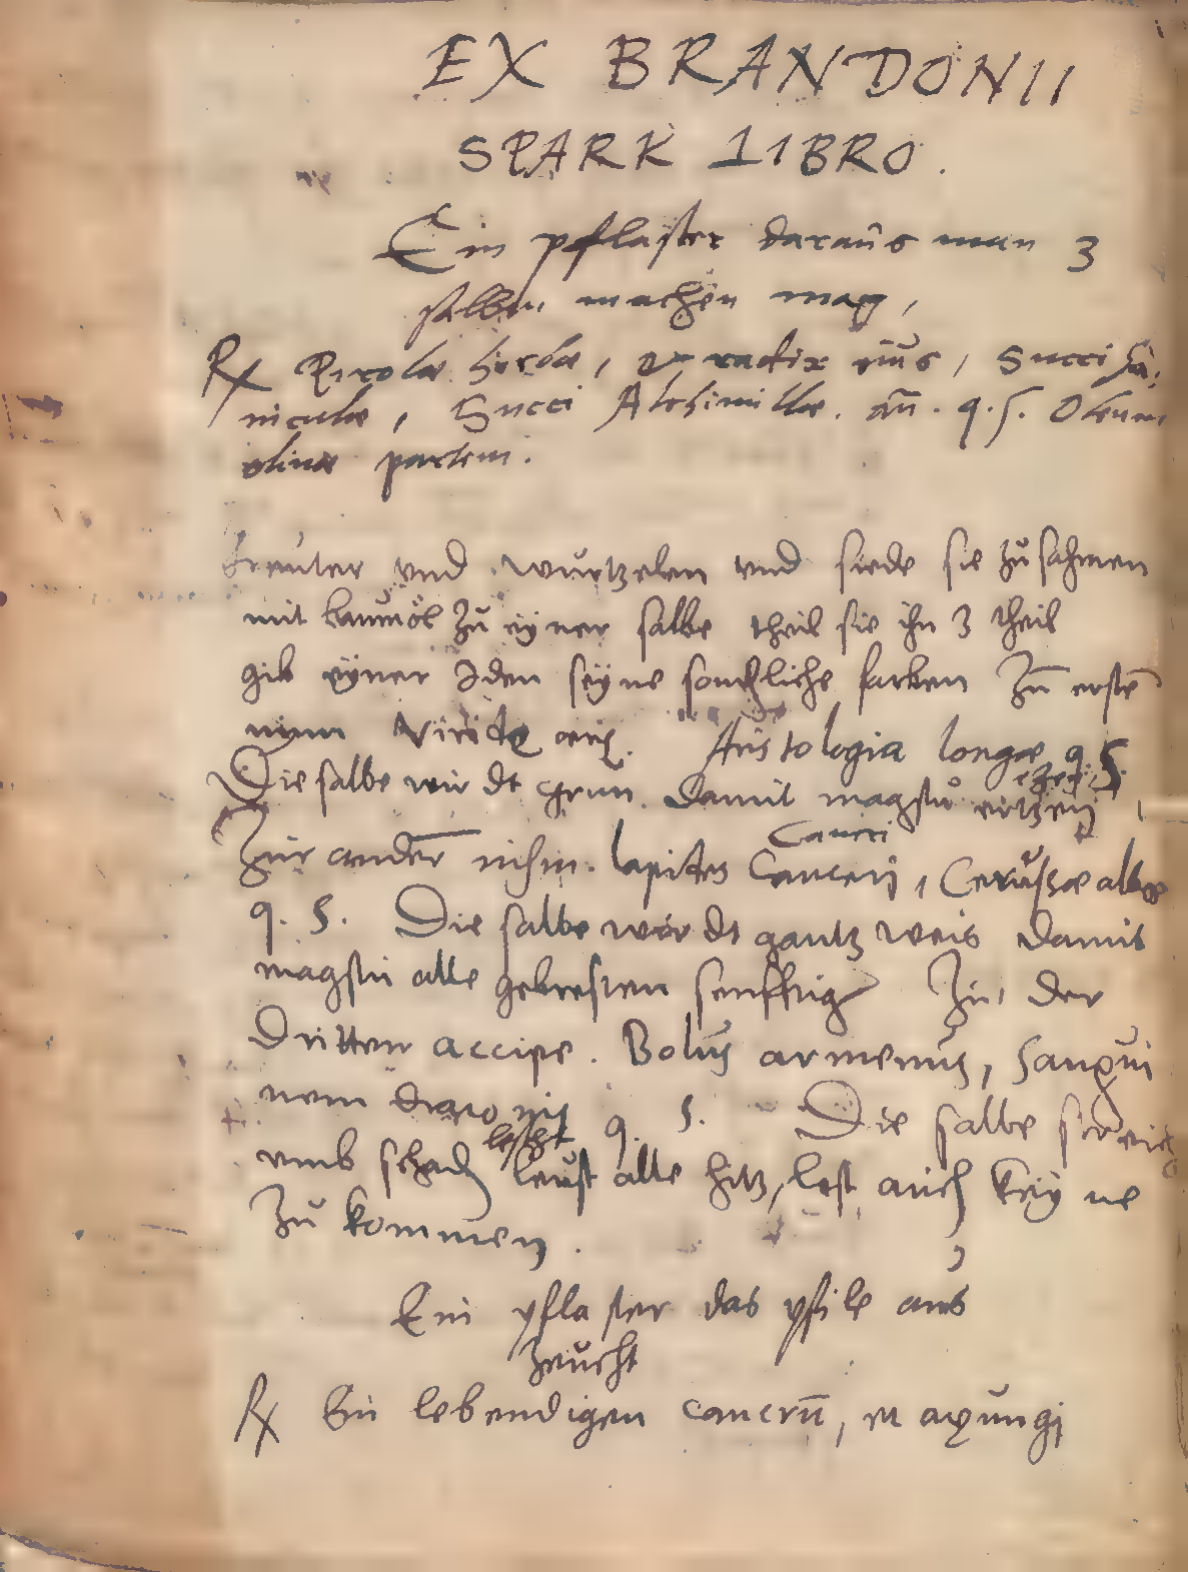 EX BRANDONII
SPARK LIBRO.
Ein pflaster daraus man 3
salben machen mag,
℞ Pirolæ herbæ, et radix eius, Succi sa-
niculæ, Succi Alchimillæ. añ. q. s. Oleum
olivæ partem.
kreuter vnd wurtzelen vnd siede sie zusahmen
mit baumöl zu eyner salbe theil sie ihn 3 theil
gib eyner Jden seyne farben Zũ erstē
nym Viride æris. Aristologia longæ q. s.
Die salbe wirdt grun. damit magstu
Zur anderr nihm. lapides Cancri
Cancri, Cerussæ albæ
q. s. Die salbe wirdt gantz weis damit
magstu alle gebresten senfftig Zu der
Dritten accipe. Bolus armenus, sangui
nem draconis q. s. Die salbe
vmb schadẽ lescht alle hitz, lest auch keyne
zu kommen.
Ein pflaster das pfile aus
zeucht
℞ lebendigen cancrũ, et axungi